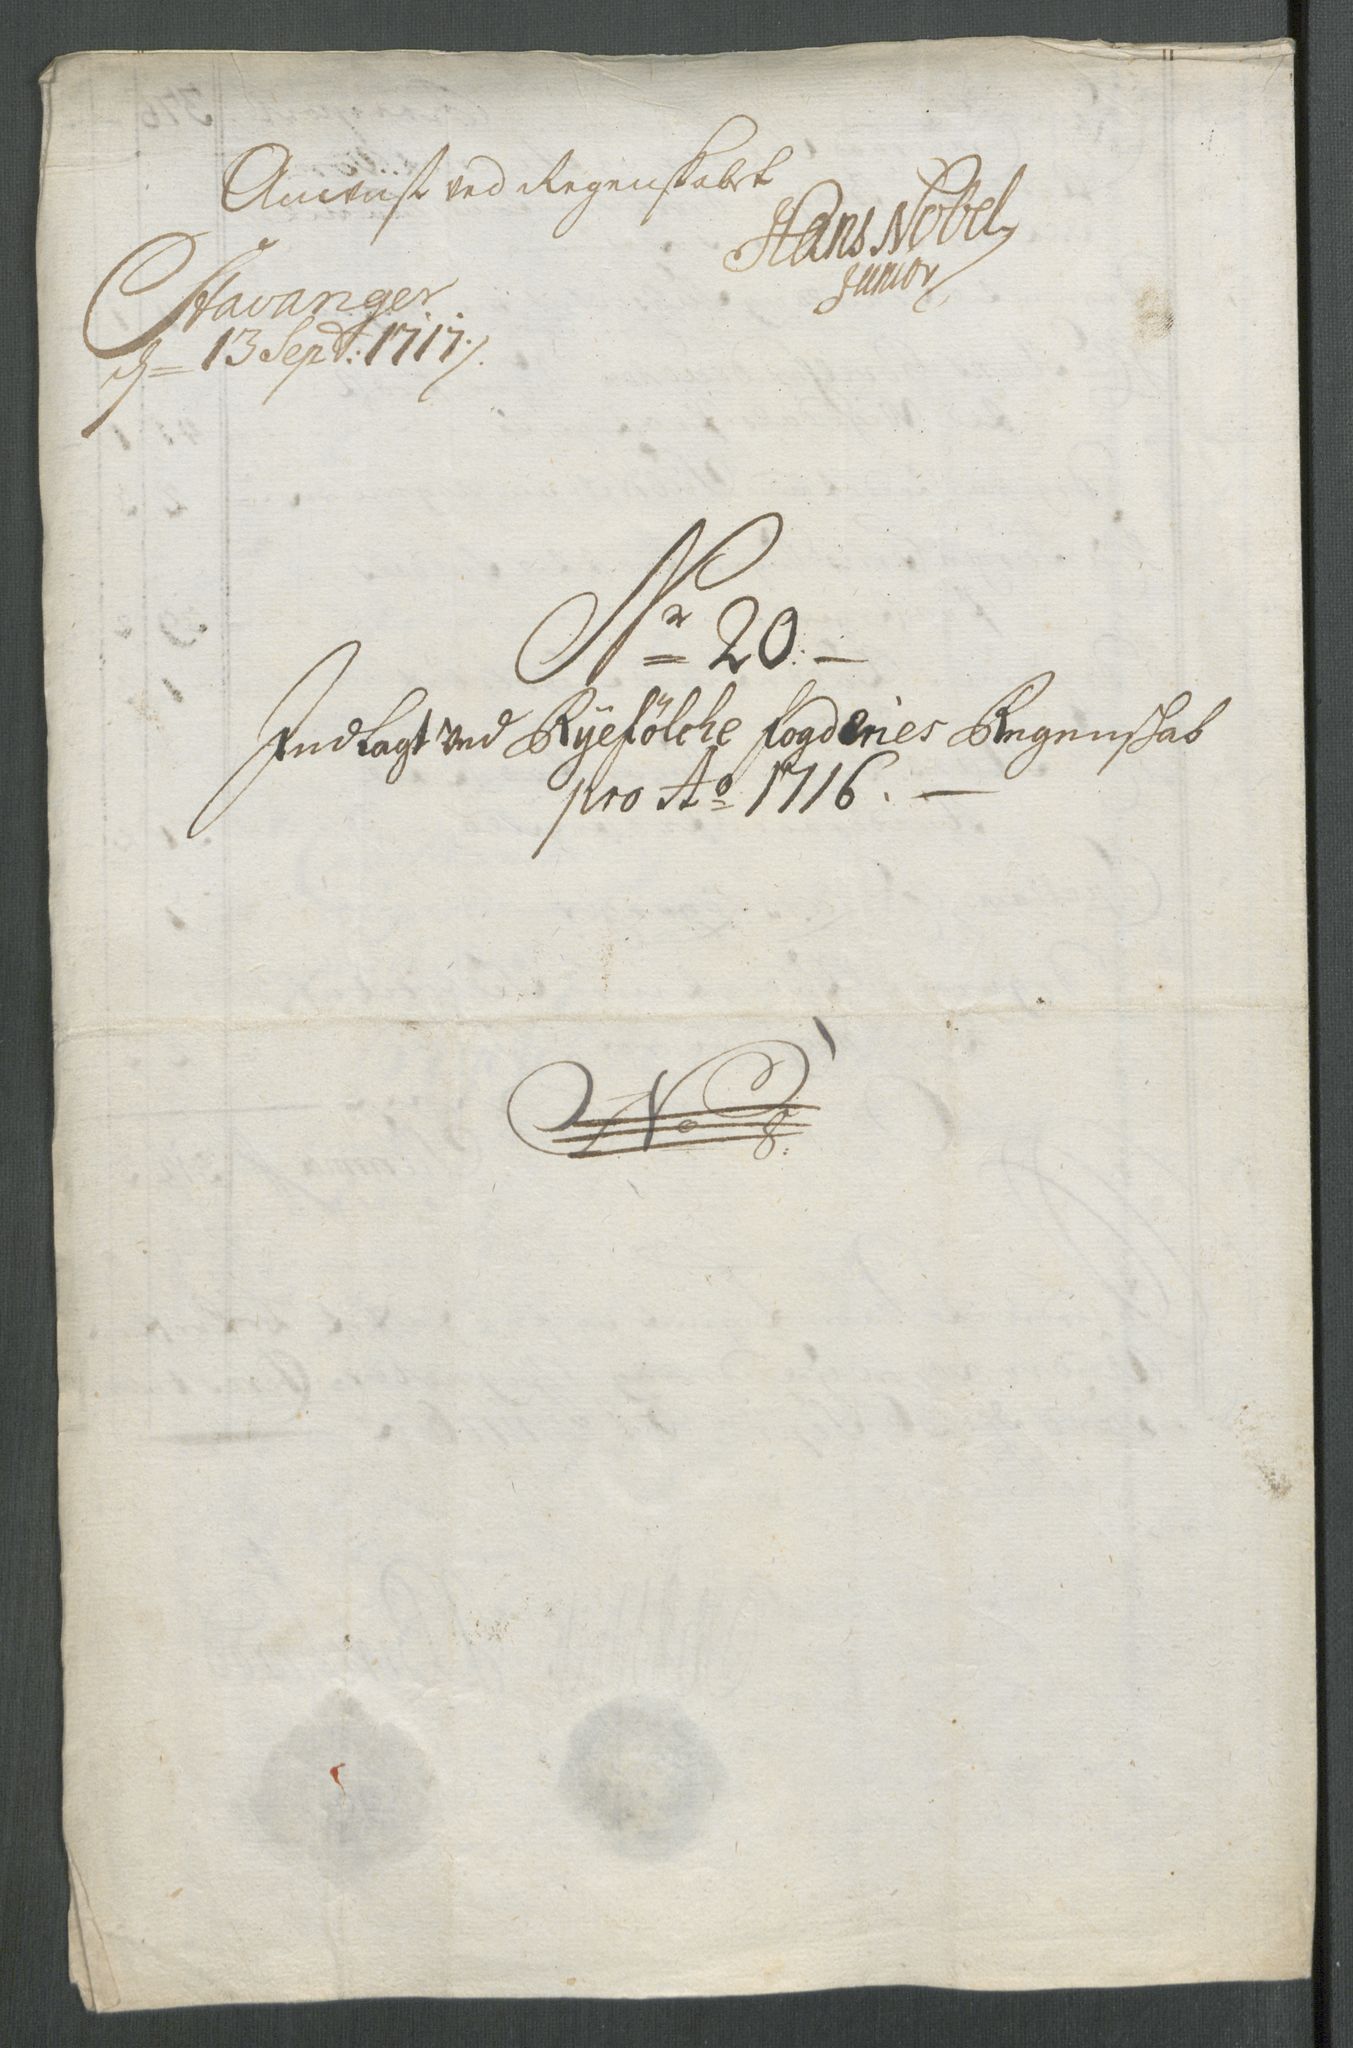 Anvist ved Regenskabet
Hans Nobel
Junior
Stavanger
d. 13 Sept: 1717.
Nr 20.
Indlagt ved Ryefölche fogderies Regenskab
pro Ao 1716.
No 8.